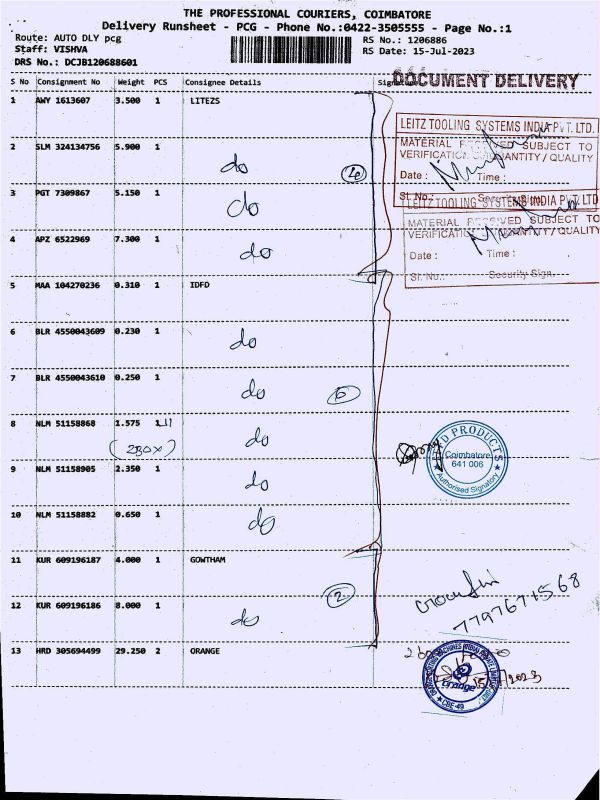 THE PROFESSIONAL COURIERS, COIMBATORE
Delivery Runsheet - PCG - Phone No.:0422-3505555 - Page No.:1
Route: AUTO DLY pcg
RS No.: 1206886
Staff: VISHVA
RS Date: 15-Jul-2023
DRS No.: DCJB120688601
DOCUMENT DELIVERY
S No Consignment No Weight PCS Consignee Details Signature
1 AWY 1613607 3.500 1 LITEZS
LEITZ TOOLING SYSTEMS INDIA PVT. LTD.
MATERIAL RECEIVED SUBJECT TO
VERIFICATION QUANTITY / QUALITY
Date : Time :
Sl. No.:
2 SLM 324134756 5.900 1 do
3 PGT 7309867 5.150 1 do
LEITZ TOOLING SYSTEMS INDIA PVT. LTD.
MATERIAL RECEIVED SUBJECT TO
VERIFICATION QUANTITY / QUALITY
Date : Time :
Sl. No.: Security Sign.
4 APZ 6522969 7.300 1 do
5 MAA 104270236 0.310 1 IDFD
6 BLR 4550043609 0.230 1 do
7 BLR 4550043610 0.250 1 do
6
8 NLM 51158868 1.575 1 do
(2BOX)
9 NLM 51158905 2.350 1 do
PRODUCTS
Coimbatore
641 006
Authorised Signatory
10 NLM 51158882 0.650 1 do
11 KUR 609196187 4.000 1 GOWTHAM
2
7797671568
12 KUR 609196186 8.000 1 do
13 HRD 305694499 29.250 2 ORANGE
Orange
CBE-49